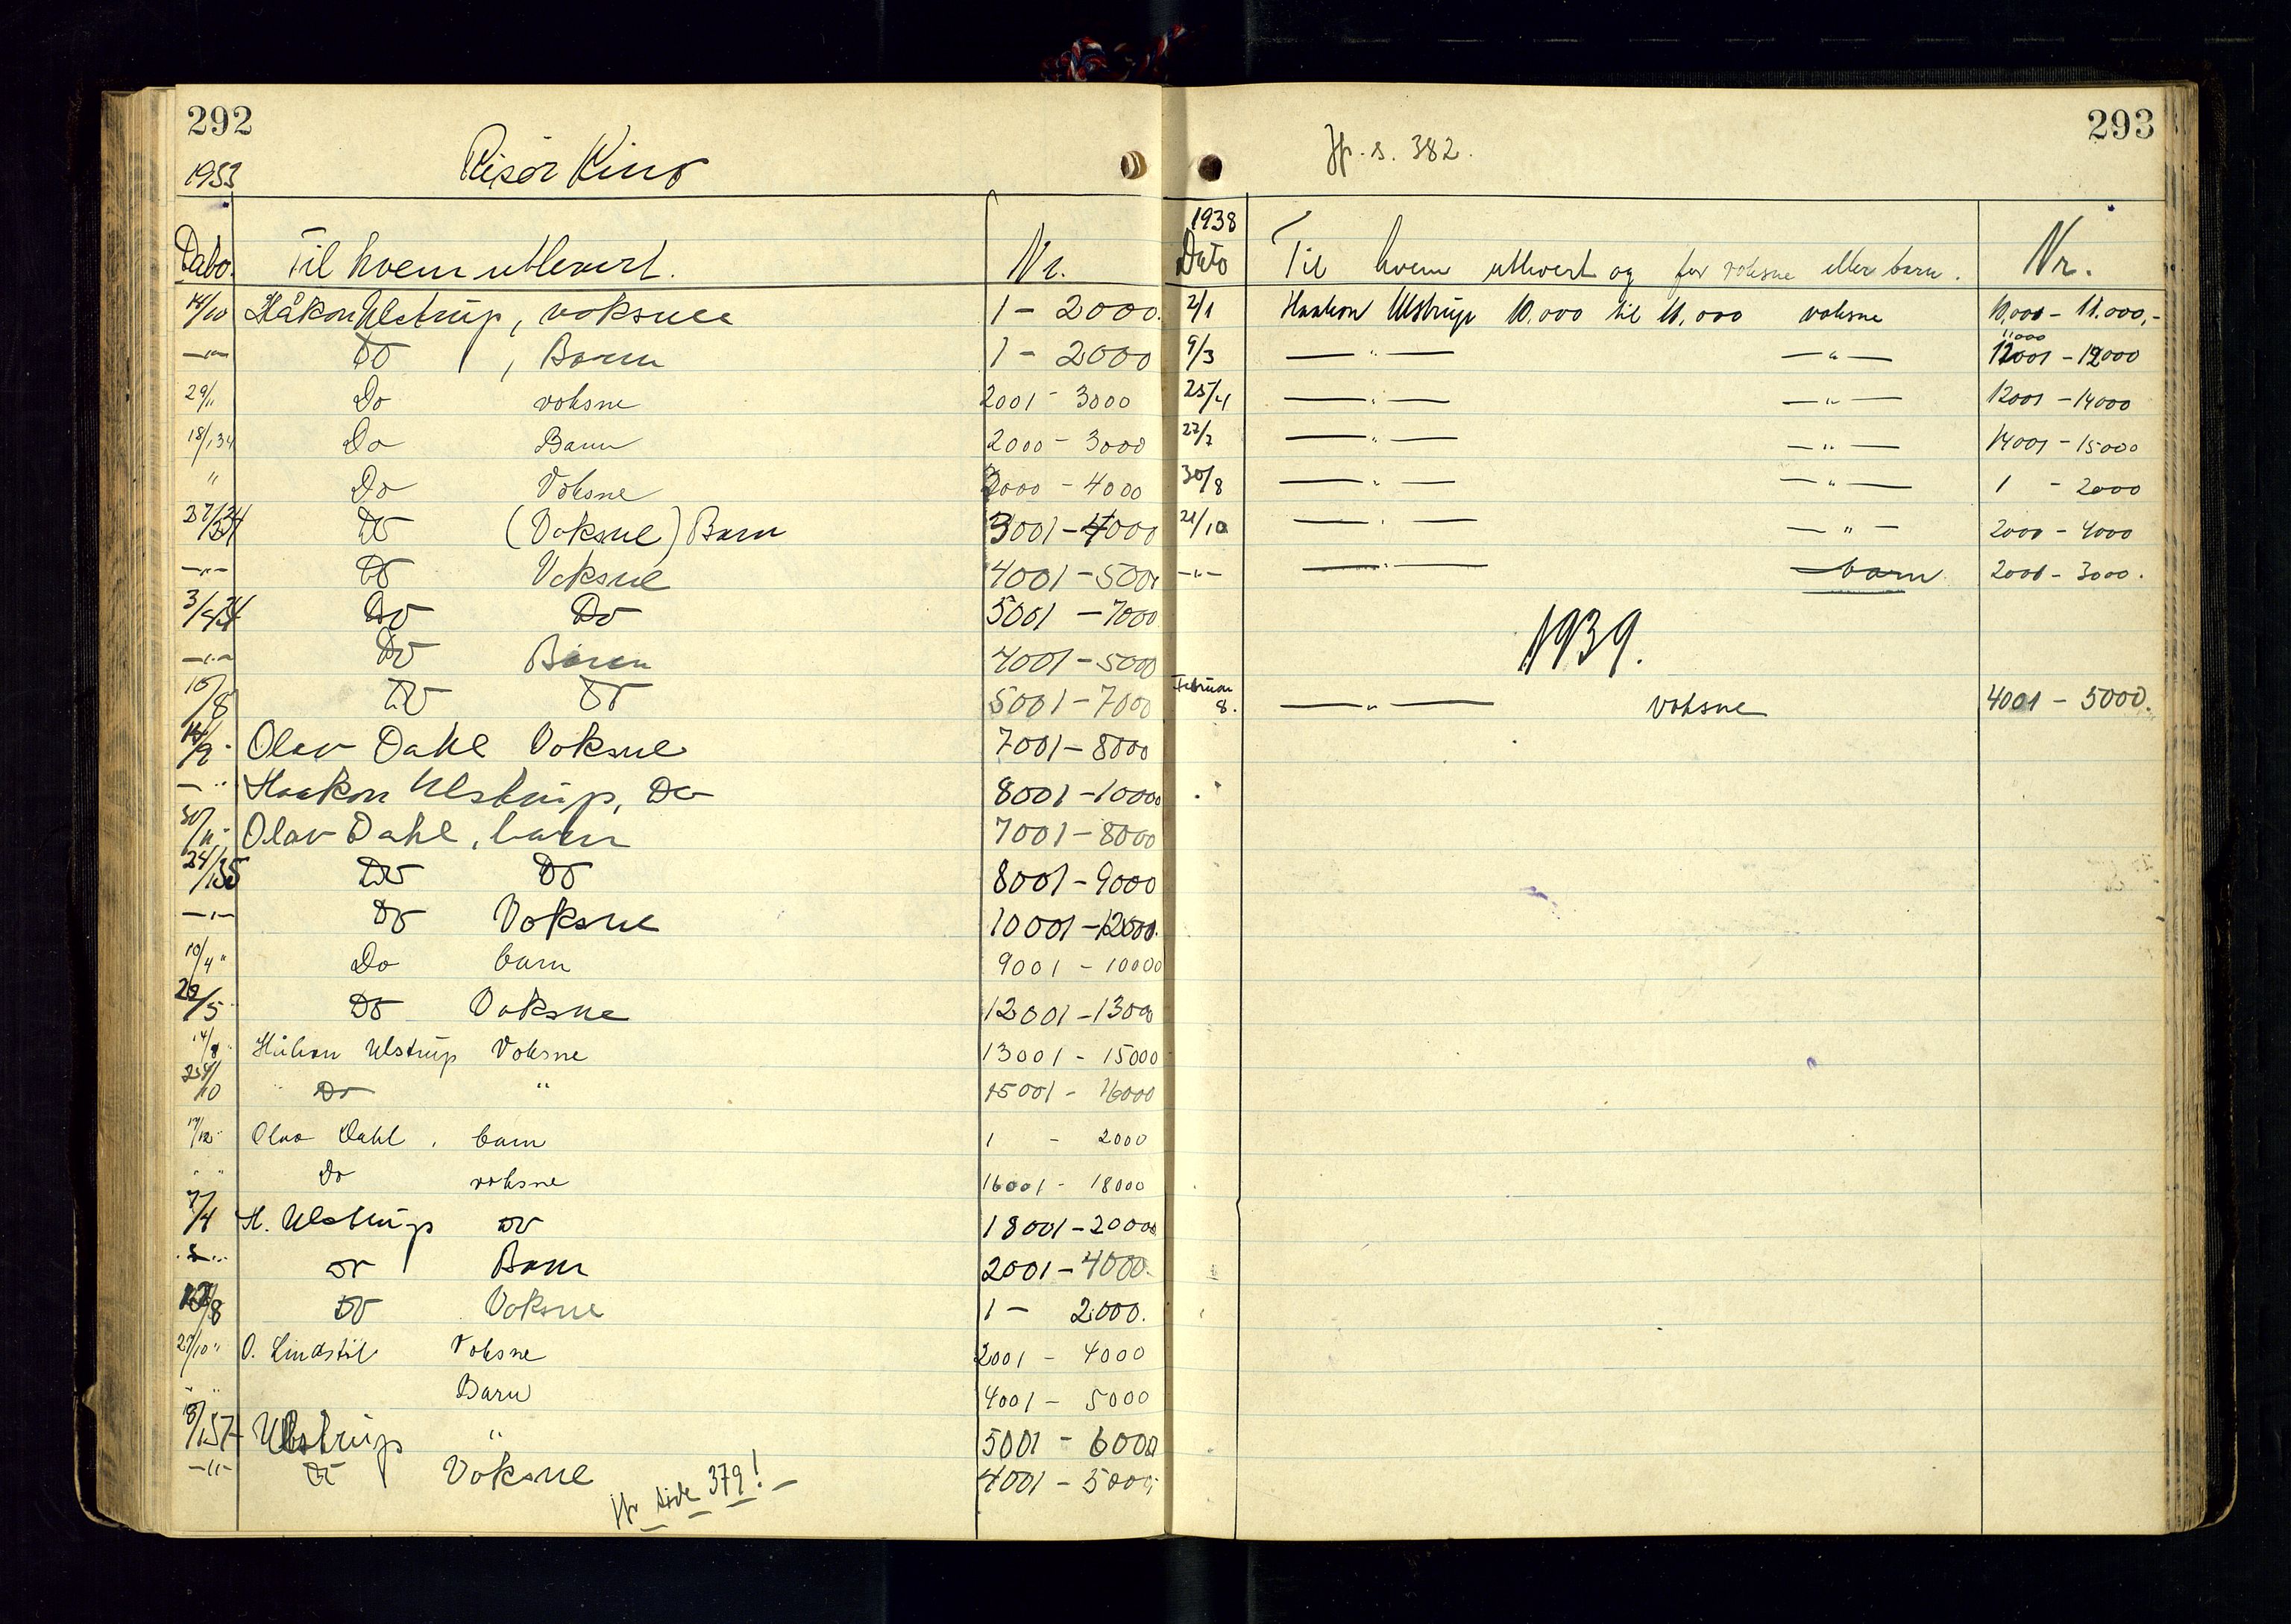 292
1933 Risör Kino
Dato. Til hvem utlevert. Nr.
18/10 Håkon Ulstrup, voksne 1 - 2000.
—"— Do , Barn 1 - 2000
29/11 Do voksne 2001 - 3000
18/1 34 Do Barn 2000 - 3000
" Do Voksne 3000 - 4000
Do (Voksne) Barn 3001 - 4000
—"— Do Voksne 4001 - 5000
Do Do 5001 - 7000
—"— Do Barn 4001 - 5000
Do Do 5001 - 7000
Olav Dahl Voksne 7001 - 8000
— " Haakon Ulstrup, Do 8001 - 10000
Olav Dahl, barn 7001 - 8000
24/1 35 Do Do 8001 - 9000
—"— Do Voksne 10001 - 12000.
10/4 " Do barn 9001 - 10000
Do Voksne 12001 - 1300
14/8 " Håkon Ulstrup Voksne 13001 - 15000
" Do " 15001 - 16000
17/12 " Olav Dahl , barn 1 - 2000
" " Do voksne 16001 - 18000
7/4 H. Ulstrup Do 18001 - 20000
Do Barn 2001 - 4000.
Do Voksne 1 - 2000.
27/10 " O. Lindstöl Voksne 2001 - 4000
" " Barn 4001 - 5000
Ulstrup " 5001 - 6000
—"— Do Voksne 4001 - 5000
jfr side 379! —
293
Jfr. s. 382.
1938
Dato Til hvem utlevert og for voksne eller barn. Nr.
2/1 Haakon Ulstrup 10.000 til 11.000 voksne 10,000 - 11.000,-
11000
9/3 — " — — " — 12001 - 12000
25/4 — " — — " — 12001 - 14000
— " — — " — 14001 - 15000
30/8 — " — — " — 1 - 2000
21/10 — " — — " — 2000 - 4000
—"— — " — barn 2000 - 3000.
1939.
Februar
8. — " — voksne 4001 - 5000.